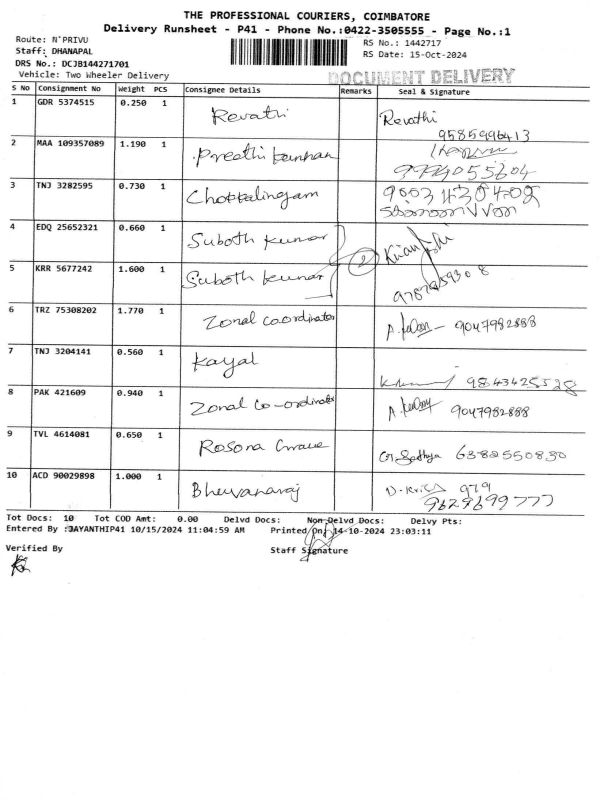 THE PROFESSIONAL COURIERS, COIMBATORE
Delivery Runsheet - P41 - Phone No.:0422-3505555 - Page No.:1
Route: N'PRIVU
RS No.: 1442717
Staff: DHANAPAL
RS Date: 15-Oct-2024
DRS No.: DCJB144271701
Vehicle: Two Wheeler Delivery
DOCUMENT DELIVERY
S No Consignment No Weight PCS Consignee Details Remarks Seal & Signature
1 GDR 5374515 0.250 1 Revathi Revathi
9585996413
2 MAA 109357089 1.190 1 Preethi
3 TNJ 3282595 0.730 1 Chokkalingam
4 EDQ 25652321 0.660 1 Suboth Kumar
2
5 KRR 5677242 1.600 1 Suboth Kumar
6 TRZ 75308202 1.770 1 Zonal Coordinator A. 9047982888
7 TNJ 3204141 0.560 1 Kayal
9843425528
8 PAK 421609 0.940 1 Zonal Co-ordinator A. 9047982888
9 TVL 4614081 0.650 1 Rosona G. Sathya 6382550830
10 ACD 90029898 1.000 1 Bhuvanaraj 979
9629699777
Tot Docs: 10 Tot COD Amt: 0.00 Delvd Docs: Non-Delvd Docs: Delvy Pts:
Entered By :JAYANTHIP41 10/15/2024 11:04:59 AM Printed On: 14-10-2024 23:03:11
Verified By
Staff Signature